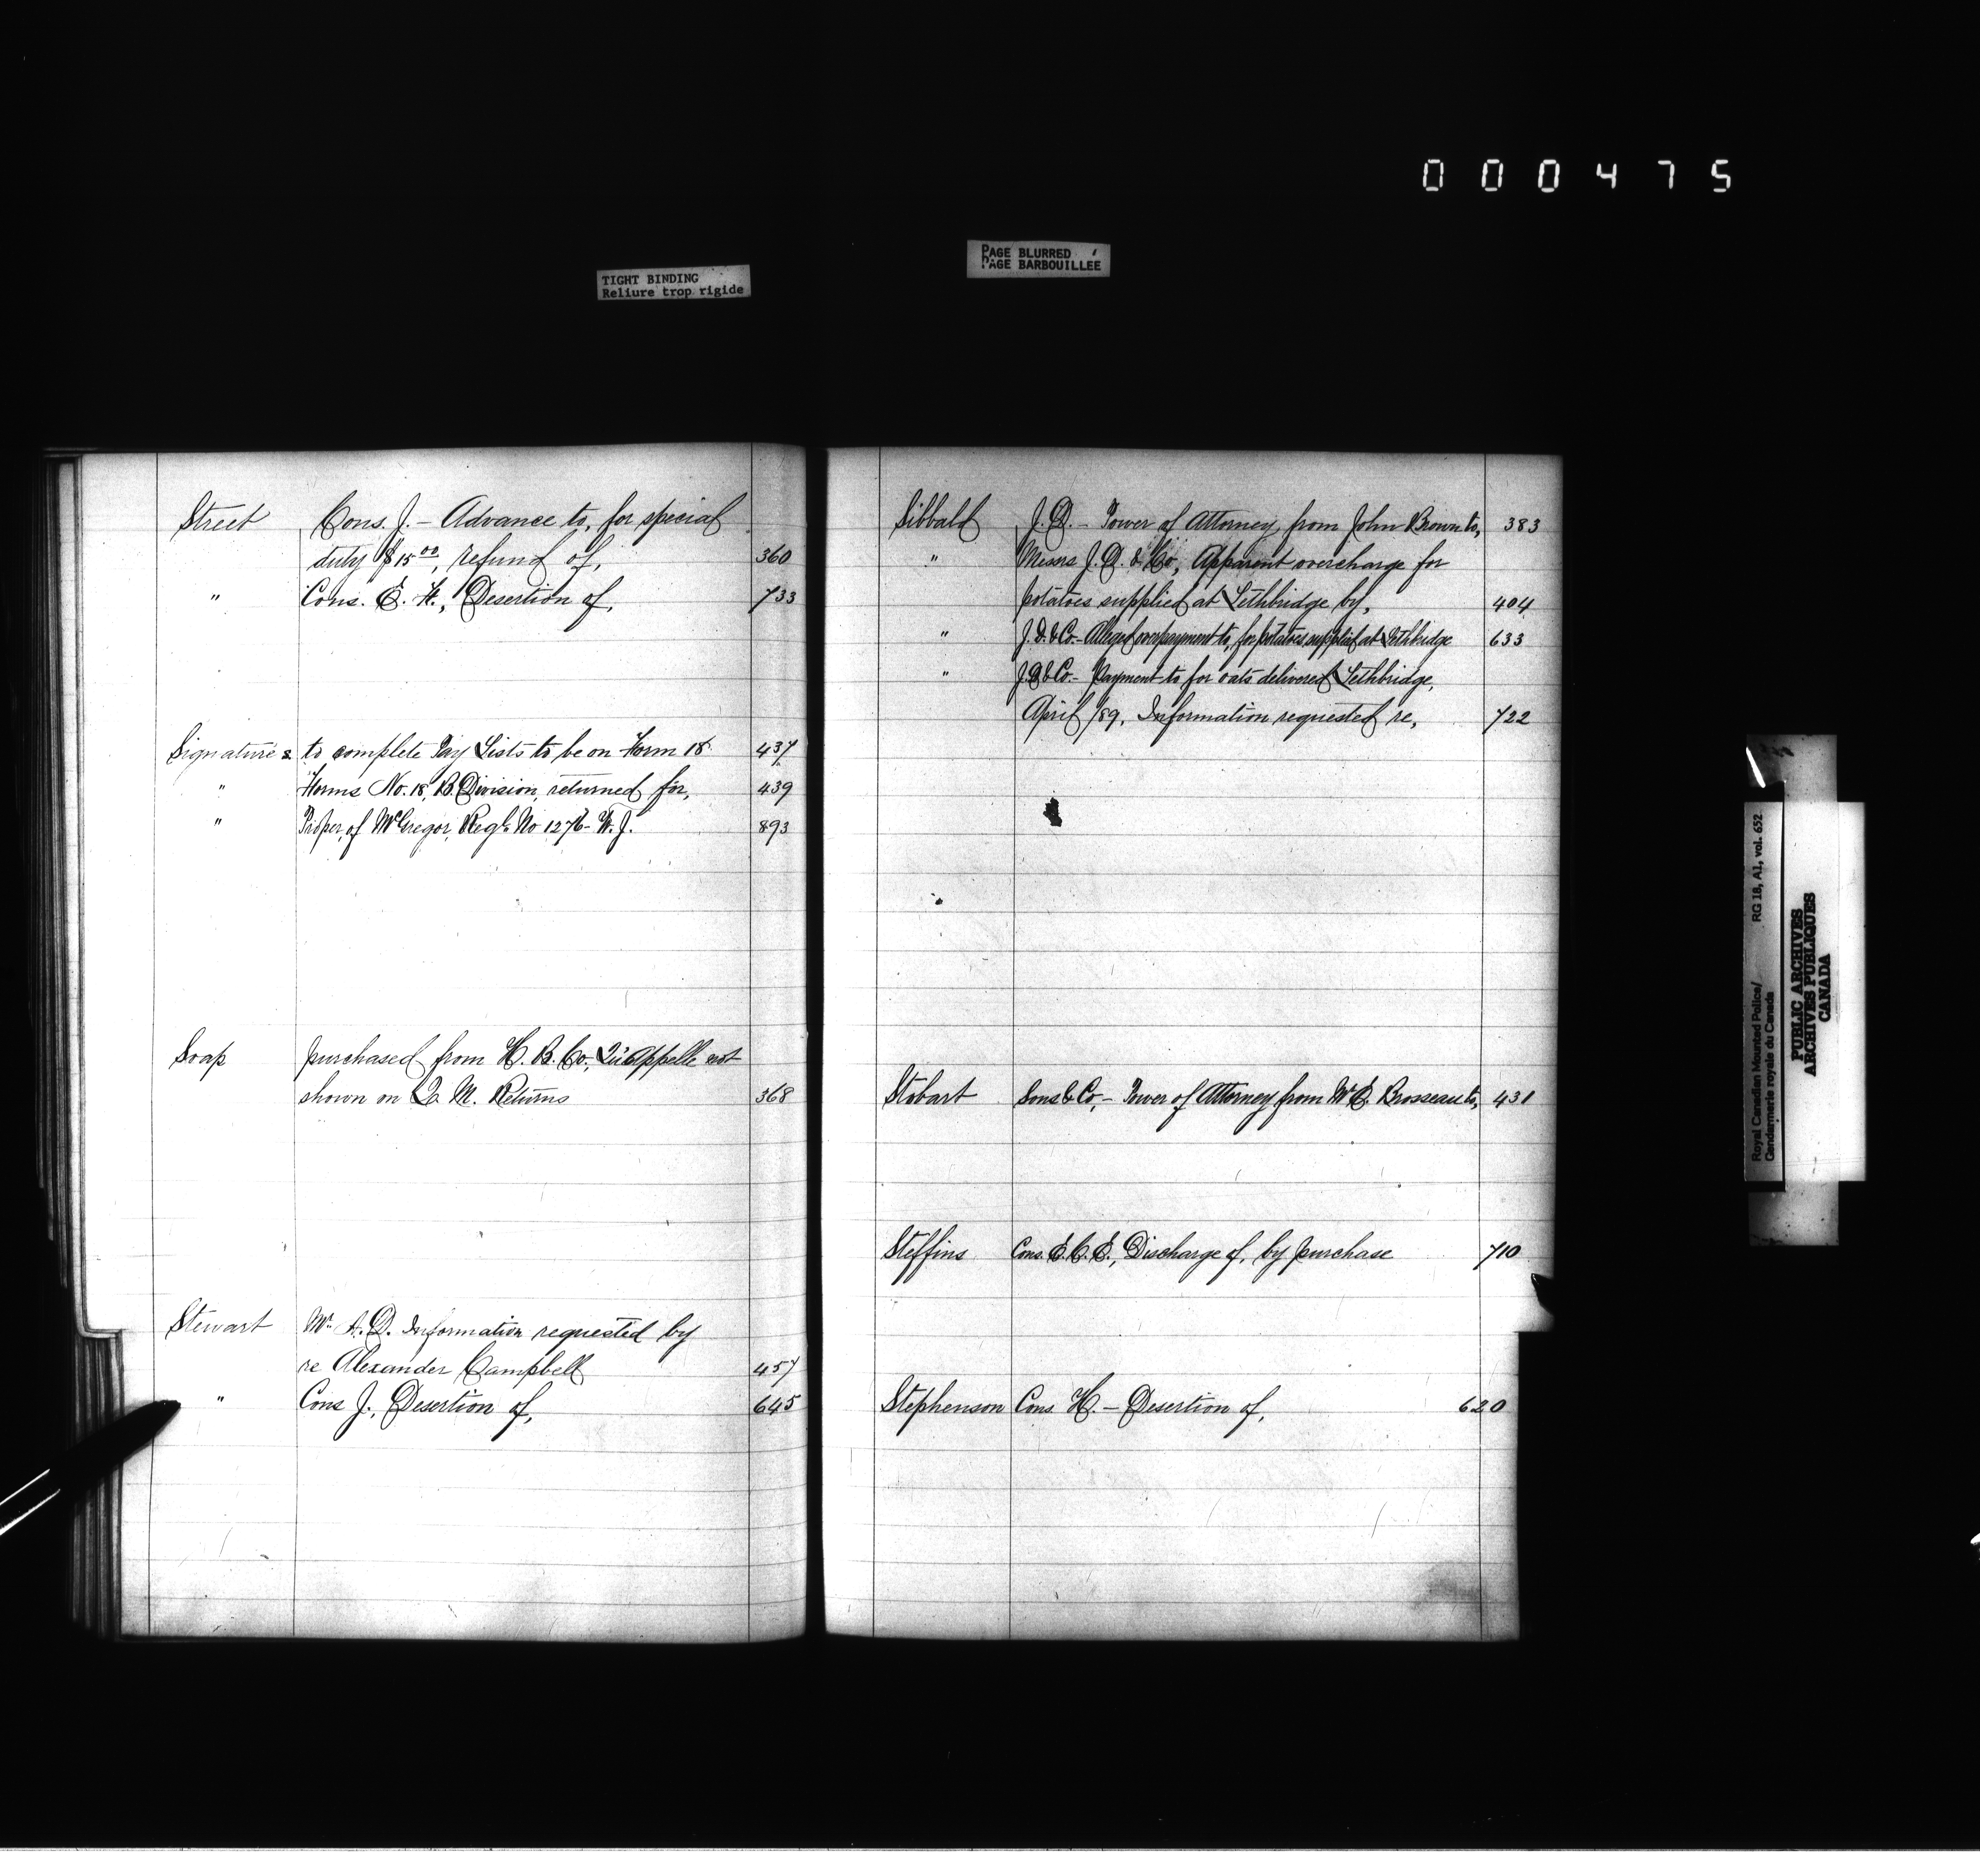 000475
TIGHT BINDING
Reliure trop rigide
PAGE BLURRED
PAGE BARBOUILLÉE
Street Cons. J. – Advance to, for special
duty $15.00, refund of, 360
" Cons. E. H., Desertion of, 733
Signatures to complete Pay Lists to be on Form 18 437
" Forms No. 18, B. Division, returned for, 439
" Proper, of McGregor, Regl. No 1276 – W. J. 893
Soap purchased from H. B. Co., Qu'Appelle not
shown on Q. M. Returns 368
Stewart Mr. A. D. Information requested by
re Alexander Campbell 457
" Cons J., Desertion of, 645
Sibbald J. D. – Power of Attorney from John Brown to, 383
" Messrs J. D. & Co., Apparent overcharge for
potatoes supplied at Lethbridge by, 404
" J. D. & Co – Alleged overpayment to, for potatoes supplied at Lethbridge 633
" J. D. & Co. – Payment to for oats delivered Lethbridge,
April /89, Information requested re, 722
Stobart Sons & Co, – Power of Attorney from Mr E. Brosseau to, 431
Steffins Cons. E. C. E., Discharge of, by purchase 710
Stephenson Cons. H. – Desertion of, 620
Royal Canadian Mounted Police/ RG 18, A1, vol. 652
Gendarmerie royale du Canada
PUBLIC ARCHIVES
ARCHIVES PUBLIQUES
CANADA